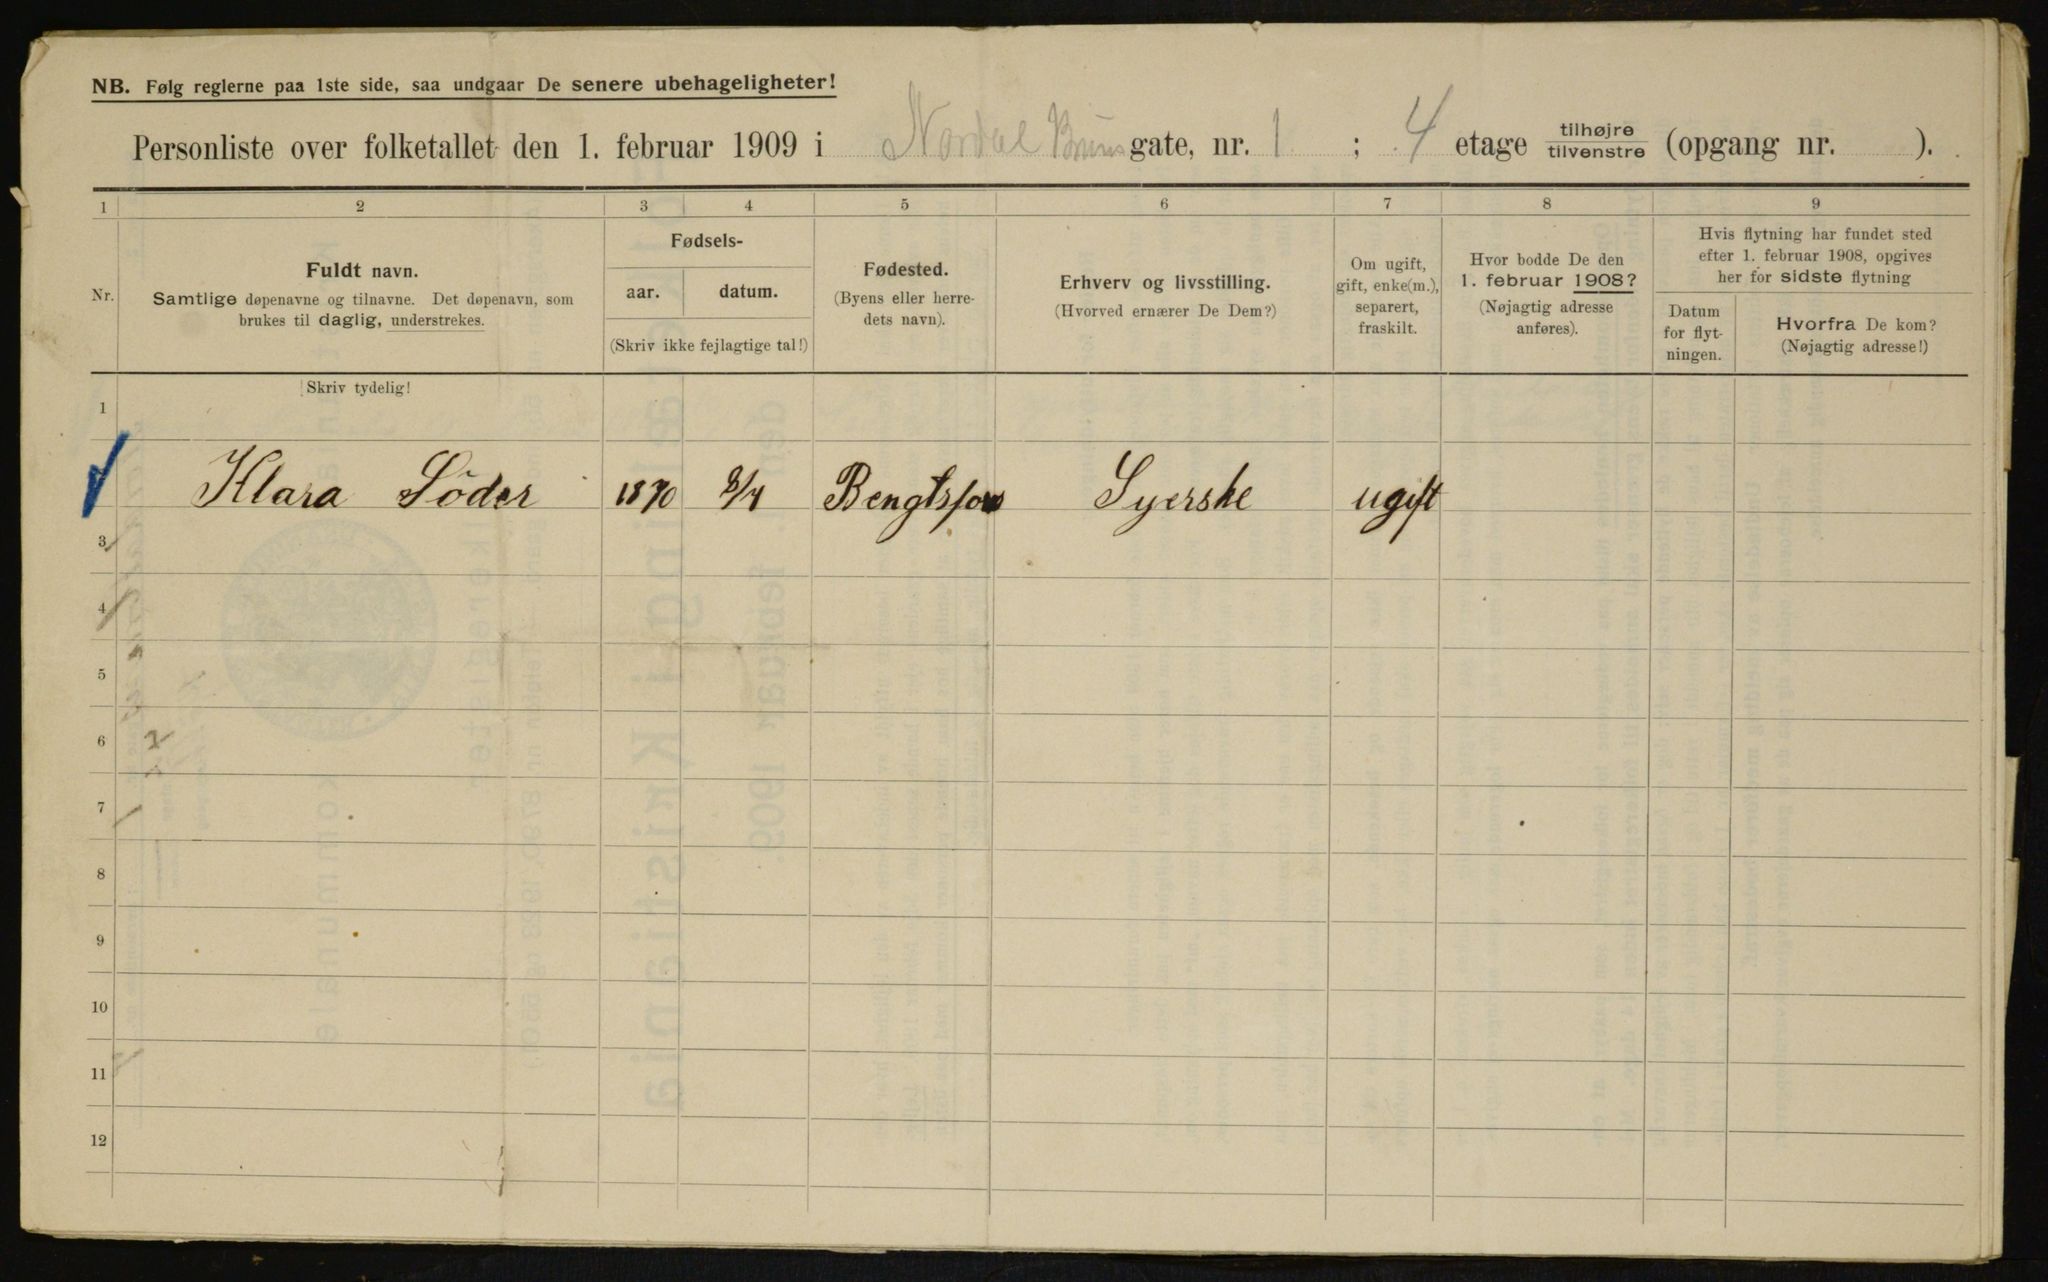 NB. Følg reglerne paa 1ste side, saa undgaar De senere ubehageligheter!
Personliste over folketallet den 1. februar 1909 i Nordal Bruns gate, nr. 1 ; 4 etage tilhøjre tilvenstre (opgang nr. ).
1 2 3 4 5 6 7 8 9
Nr.
Fuldt navn.
Samtlige døpenavne og tilnavne. Det døpenavn, som
brukes til daglig, understrekes.
Fødsels-
aar. datum.
(Skriv ikke fejlagtige tal!)
Fødested.
(Byens eller herre-
dets navn).
Erhverv og livsstilling.
(Hvorved ernærer De Dem?)
Om ugift,
gift, enke(m.),
separert,
fraskilt.
Hvor bodde De den
1. februar 1908?
(Nøjagtig adresse
anføres).
Hvis flytning har fundet sted
efter 1. februar 1908, opgives
her for sidste flytning
Datum
for flyt-
ningen.
Hvorfra De kom?
(Nøjagtig adresse!)
Skriv tydelig!
1
Klara Söder 1870 8/4 Bengtsfors Syerske ugift
3
4
5
6
7
8
9
10
11
12